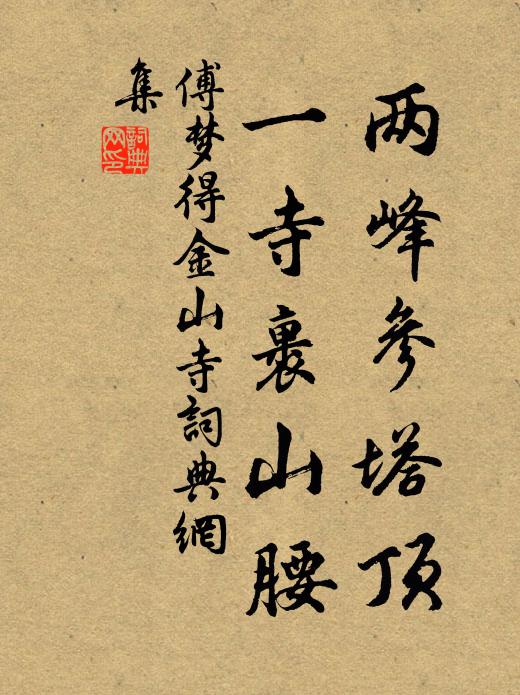 两峰参塔顶
一寺裹山腰
傅梦得金山寺詞典網
集
詞典网印